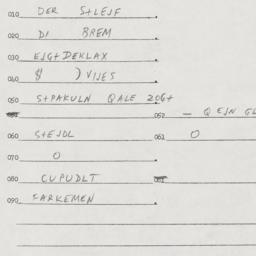 010 DER S+LEJF
020 DI BREM
030 EJG+DEKLAX
040 $ ) VIJES
050 S+PAKULN QALE ZOG+
052 — Q EJN GL
060 S+EJDL 062 O
070 O
080 CUPUDLT
090 FARKEMEN